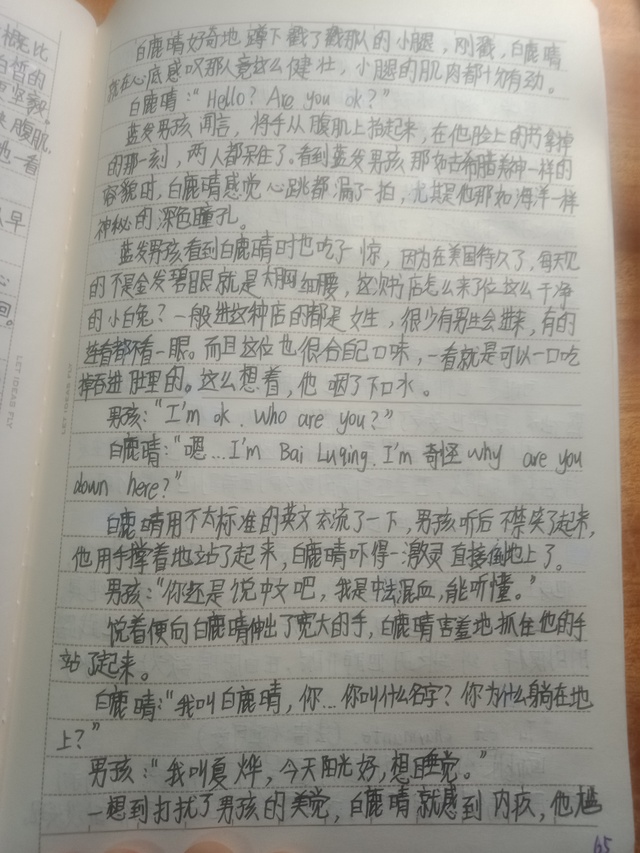 概比
白皙的
坚毅,
腹肌.
他一看
早
心
回。
LET IDEAS FLY
白鹿晴好奇地蹲下戳了戳那人的小腿，刚戳，白鹿晴
在心底感叹那人竟这么健壮，小腿的肌肉都十分有劲。
白鹿晴：“Hello? Are you ok?”
蓝发男孩闻言，将手从腹肌上抬起来，在他脸上的书拿掉
的那一刻，两人都呆住了。看到蓝发男孩那如古希腊美神一样的
容貌时，白鹿晴感觉心跳都漏了一拍，尤其是他那如海洋一样
神秘的深色瞳孔。
蓝发男孩看到白鹿晴时也吃了惊，因为在美国待久了，每天见
的不是金发碧眼就是大胸细腰，这次书店怎么来了位这么干净
的小白兔？一般进这种店的都是女生，很少有男生会进来，有的
连看都不看一眼。而且这位也很合自己口味，一看就是可以一口吃
掉吞进肚里的。这么想着，他咽了下口水。
男孩：“I'm ok. Who are you?”
白鹿晴：“嗯...I'm Bai Luqing. I'm 奇怪 why are you
down here?”
白鹿晴用不太标准的英文交流了一下，男孩听后不禁笑了起来，
他用手撑着地站了起来，白鹿晴吓得一激灵直接倒地上了。
男孩：“你还是说中文吧，我是中法混血，能听懂。”
说着便向白鹿晴伸出了宽大的手，白鹿晴害羞地抓住他的手
站了起来。
白鹿晴：“我叫白鹿晴，你...你叫什么名字？你为什么躺在地
上？”
男孩：“我叫夏烨，今天阳光好，想睡觉。”
一想到打扰了男孩的美觉，白鹿晴就感到内疚，他尴
65